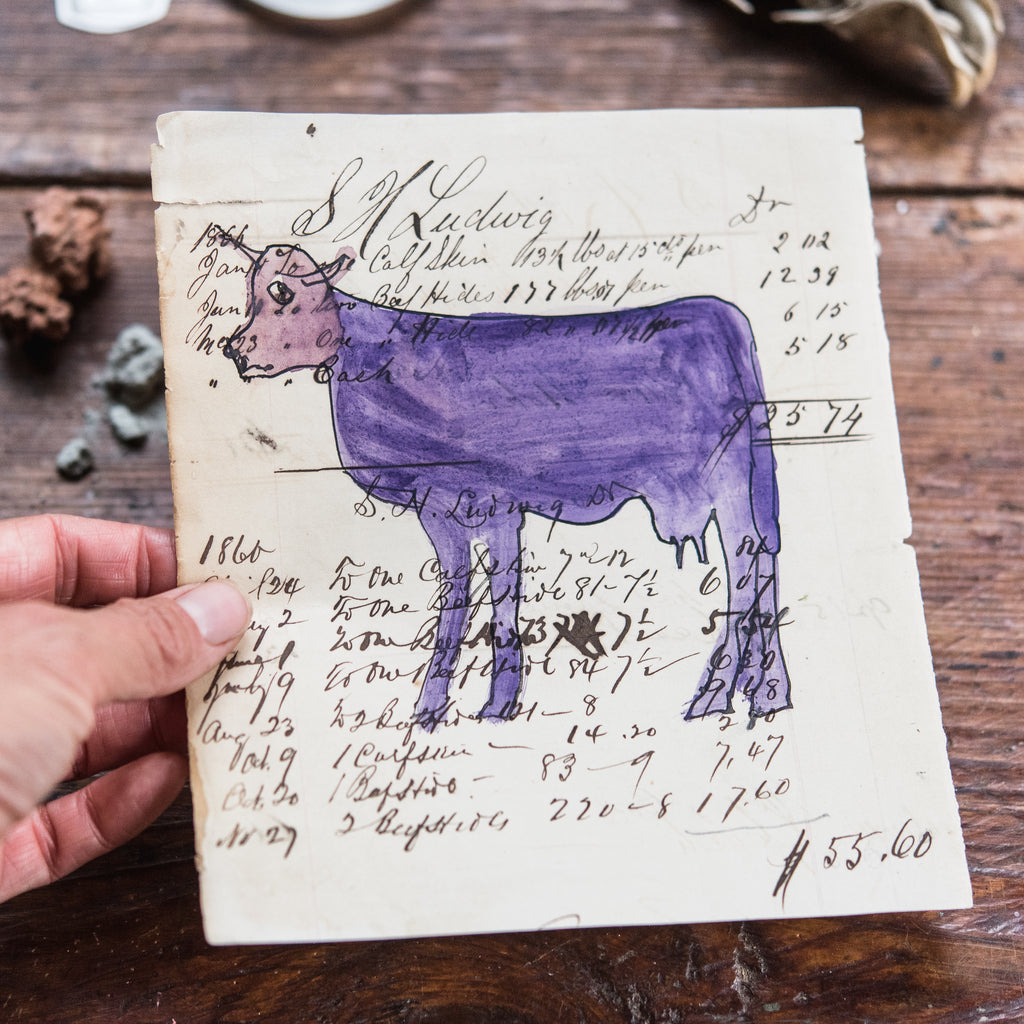 S H Ludwig Dr
186
Jan To Calf Skin 13½ lbs at 15 cts per 2 02
Jun Beef Hides 177 lbs per 12 39
23 " One " Hide 6 15
" " Cash 5 18
$ 25 74
S. H. Ludwig Dr
1866
24 To one Calfskin 7
2 To one Beefhide 81 - 7½ 6 07
To one Beef 73 7½ 5
9 To one Beefhide 84 7½ 6 30
Aug 23 To 2 Beefhides 121 - 8 9 68
Oct. 9 1 Calfskin - 14 .20 2
Oct. 20 1 83 - 9 7,47
No 27 2 Beefhides 220 - 8 17.60
$ 55.60